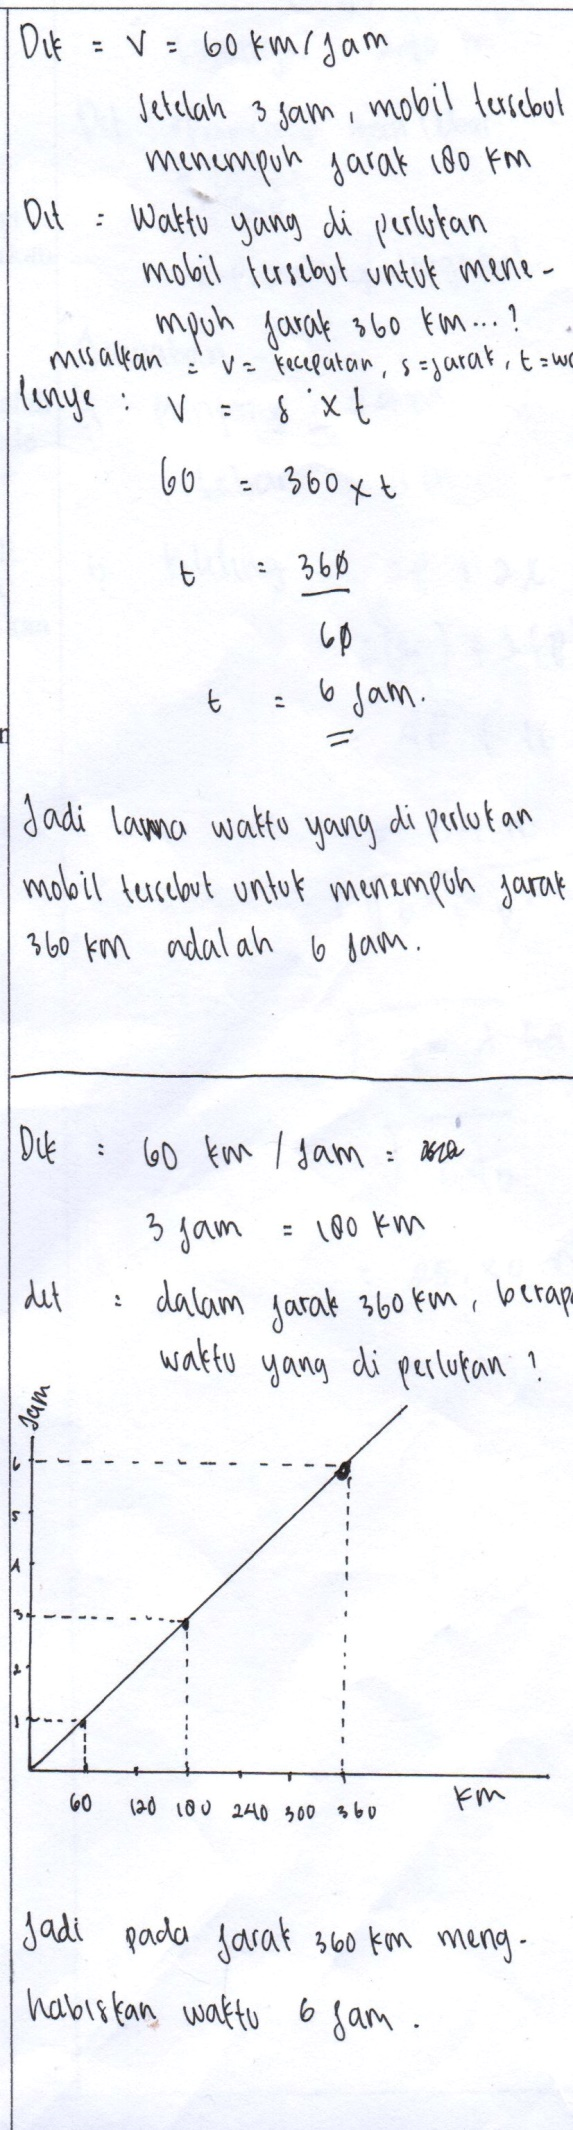 Dik = V = 60 km/jam
setelah 3 jam, mobil tersebut
menempuh jarak 180 km
Dit = Waktu yang di perlukan
mobil tersebut untuk mene-
mpuh jarak 360 km...?
misalkan = V = kecepatan, s = jarak, t = wa
Penye : V = s × t
60 = 360 × t
t = 360
60
t = 6 jam.
Jadi lama waktu yang di perlukan
mobil tersebut untuk menempuh jarak
360 km adalah 6 jam.
Dik : 60 km / jam =
3 jam = 180 km
dit : dalam jarak 360 km, berapa
waktu yang di perlukan ?
Jam
6
5
4
3
2
1
60 120 180 240 300 360 km
Jadi pada jarak 360 km meng-
habiskan waktu 6 jam.